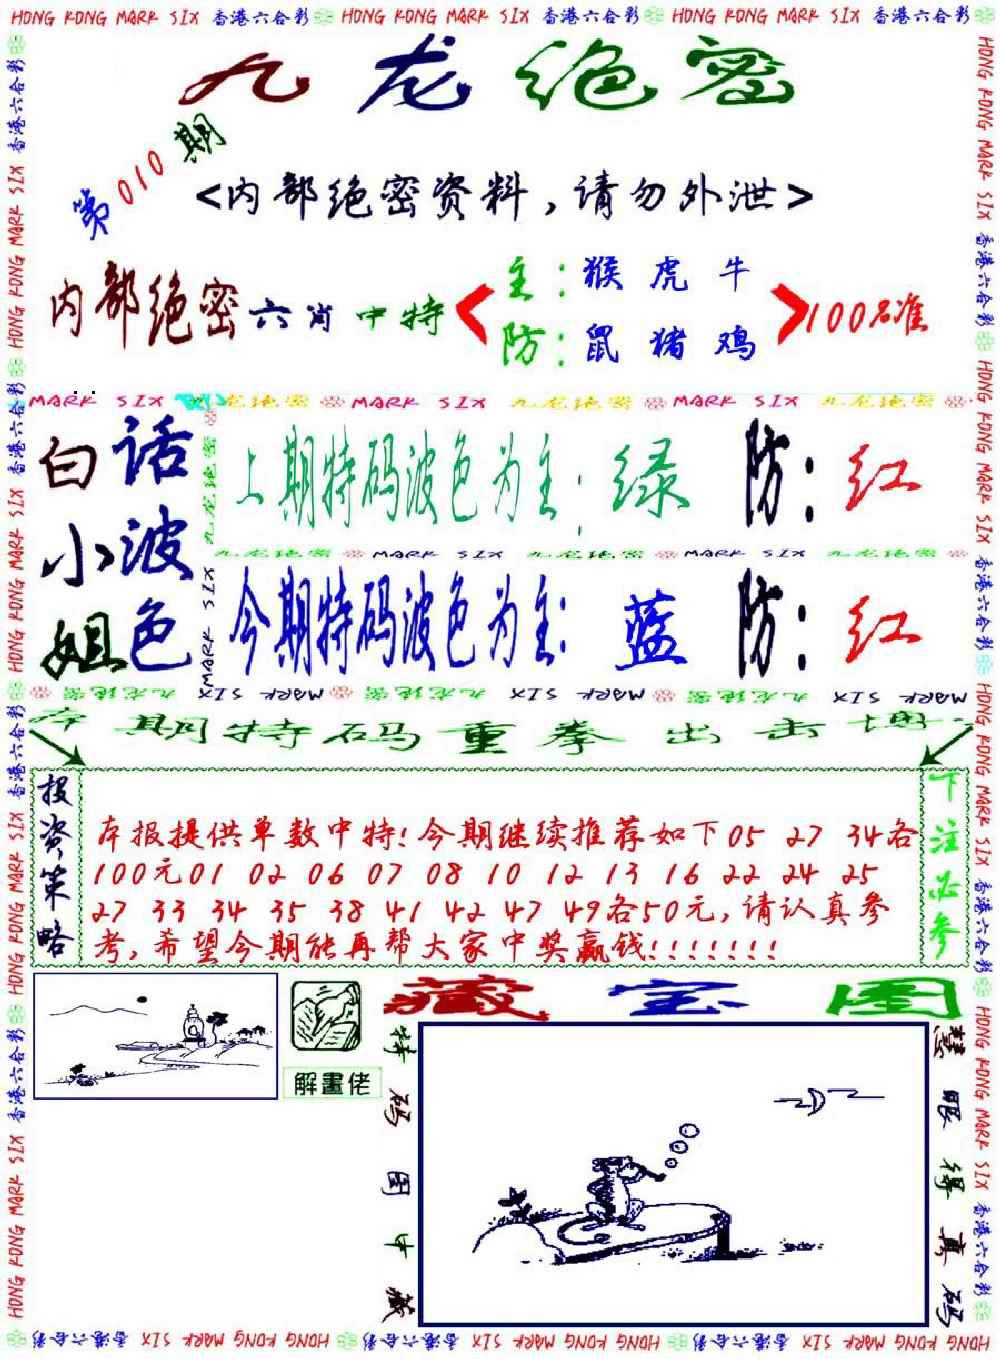 HONG KONG MARK SIX 香港六合彩 HONG KONG MARK SIX 香港六合彩 HONG KONG MARK SIX 香港六合彩
九龙绝密
第010期
<内部绝密资料，请勿外泄>
内部绝密六肖中特
主：猴 虎 牛
防：鼠 猪 鸡
100%准
MARK SIX 九龙绝密 MARK SIX 九龙绝密 MARK SIX 九龙绝密
白话小波姐色
上期特码波色为主：绿 防：红
九龙绝密 MARK SIX 九龙绝密 MARK SIX 九龙绝密
今期特码波色为主：蓝 防：红
MARK SIX 九龙绝密 MARK SIX 九龙绝密 MARK SIX 九龙绝密
本期特码重拳出击
投资策略
本报提供单数中特！今期继续推荐如下05 27 34各
100元01 02 06 07 08 10 12 13 16 22 24 25
27 33 34 35 38 41 42 47 49各50元，请认真参
考，希望今期能再帮大家中奖赢钱！！！！！！！
下注必参
解畫佬
藏宝图
特码图中藏
慧眼得真码
HONG KONG MARK SIX 香港六合彩 HONG KONG MARK SIX 香港六合彩 HONG KONG MARK SIX 香港六合彩